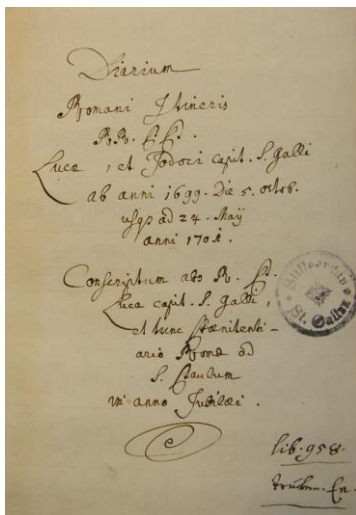 Diarium
Romani Itineris
RR. PP.
Lucæ, et Jodoci capit. S. Galli
ab anni 1699. Die 5. octob.
usqs ad 24. Maij
anni 1701.
Conscriptum abs R. P.
Luca capit. S. Galli,
et tunc Pænitenti-
ario Romæ ad
S. Paulum
in anno Jubilæi.
Stiftsarchiv
St. Gallen
lib. 958.